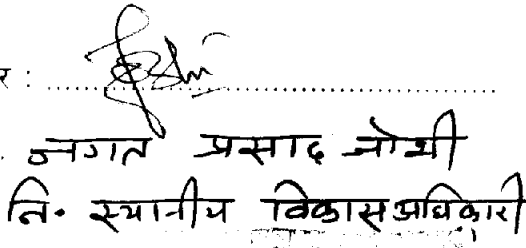 र : ................................
जगत प्रसाद जोशी
नि. स्थानीय विकास अधिकारी